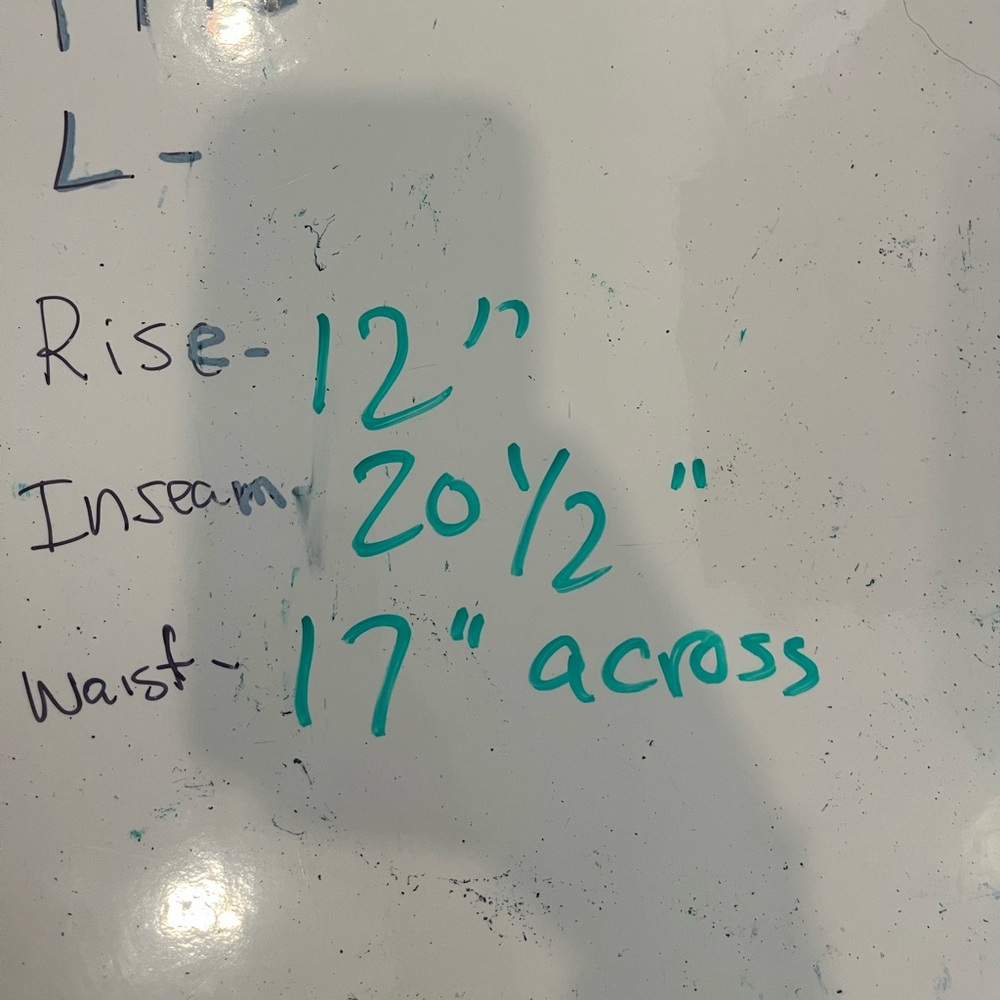 L -
Rise- 12"
Inseam- 20 1/2 "
Waist- 17" across